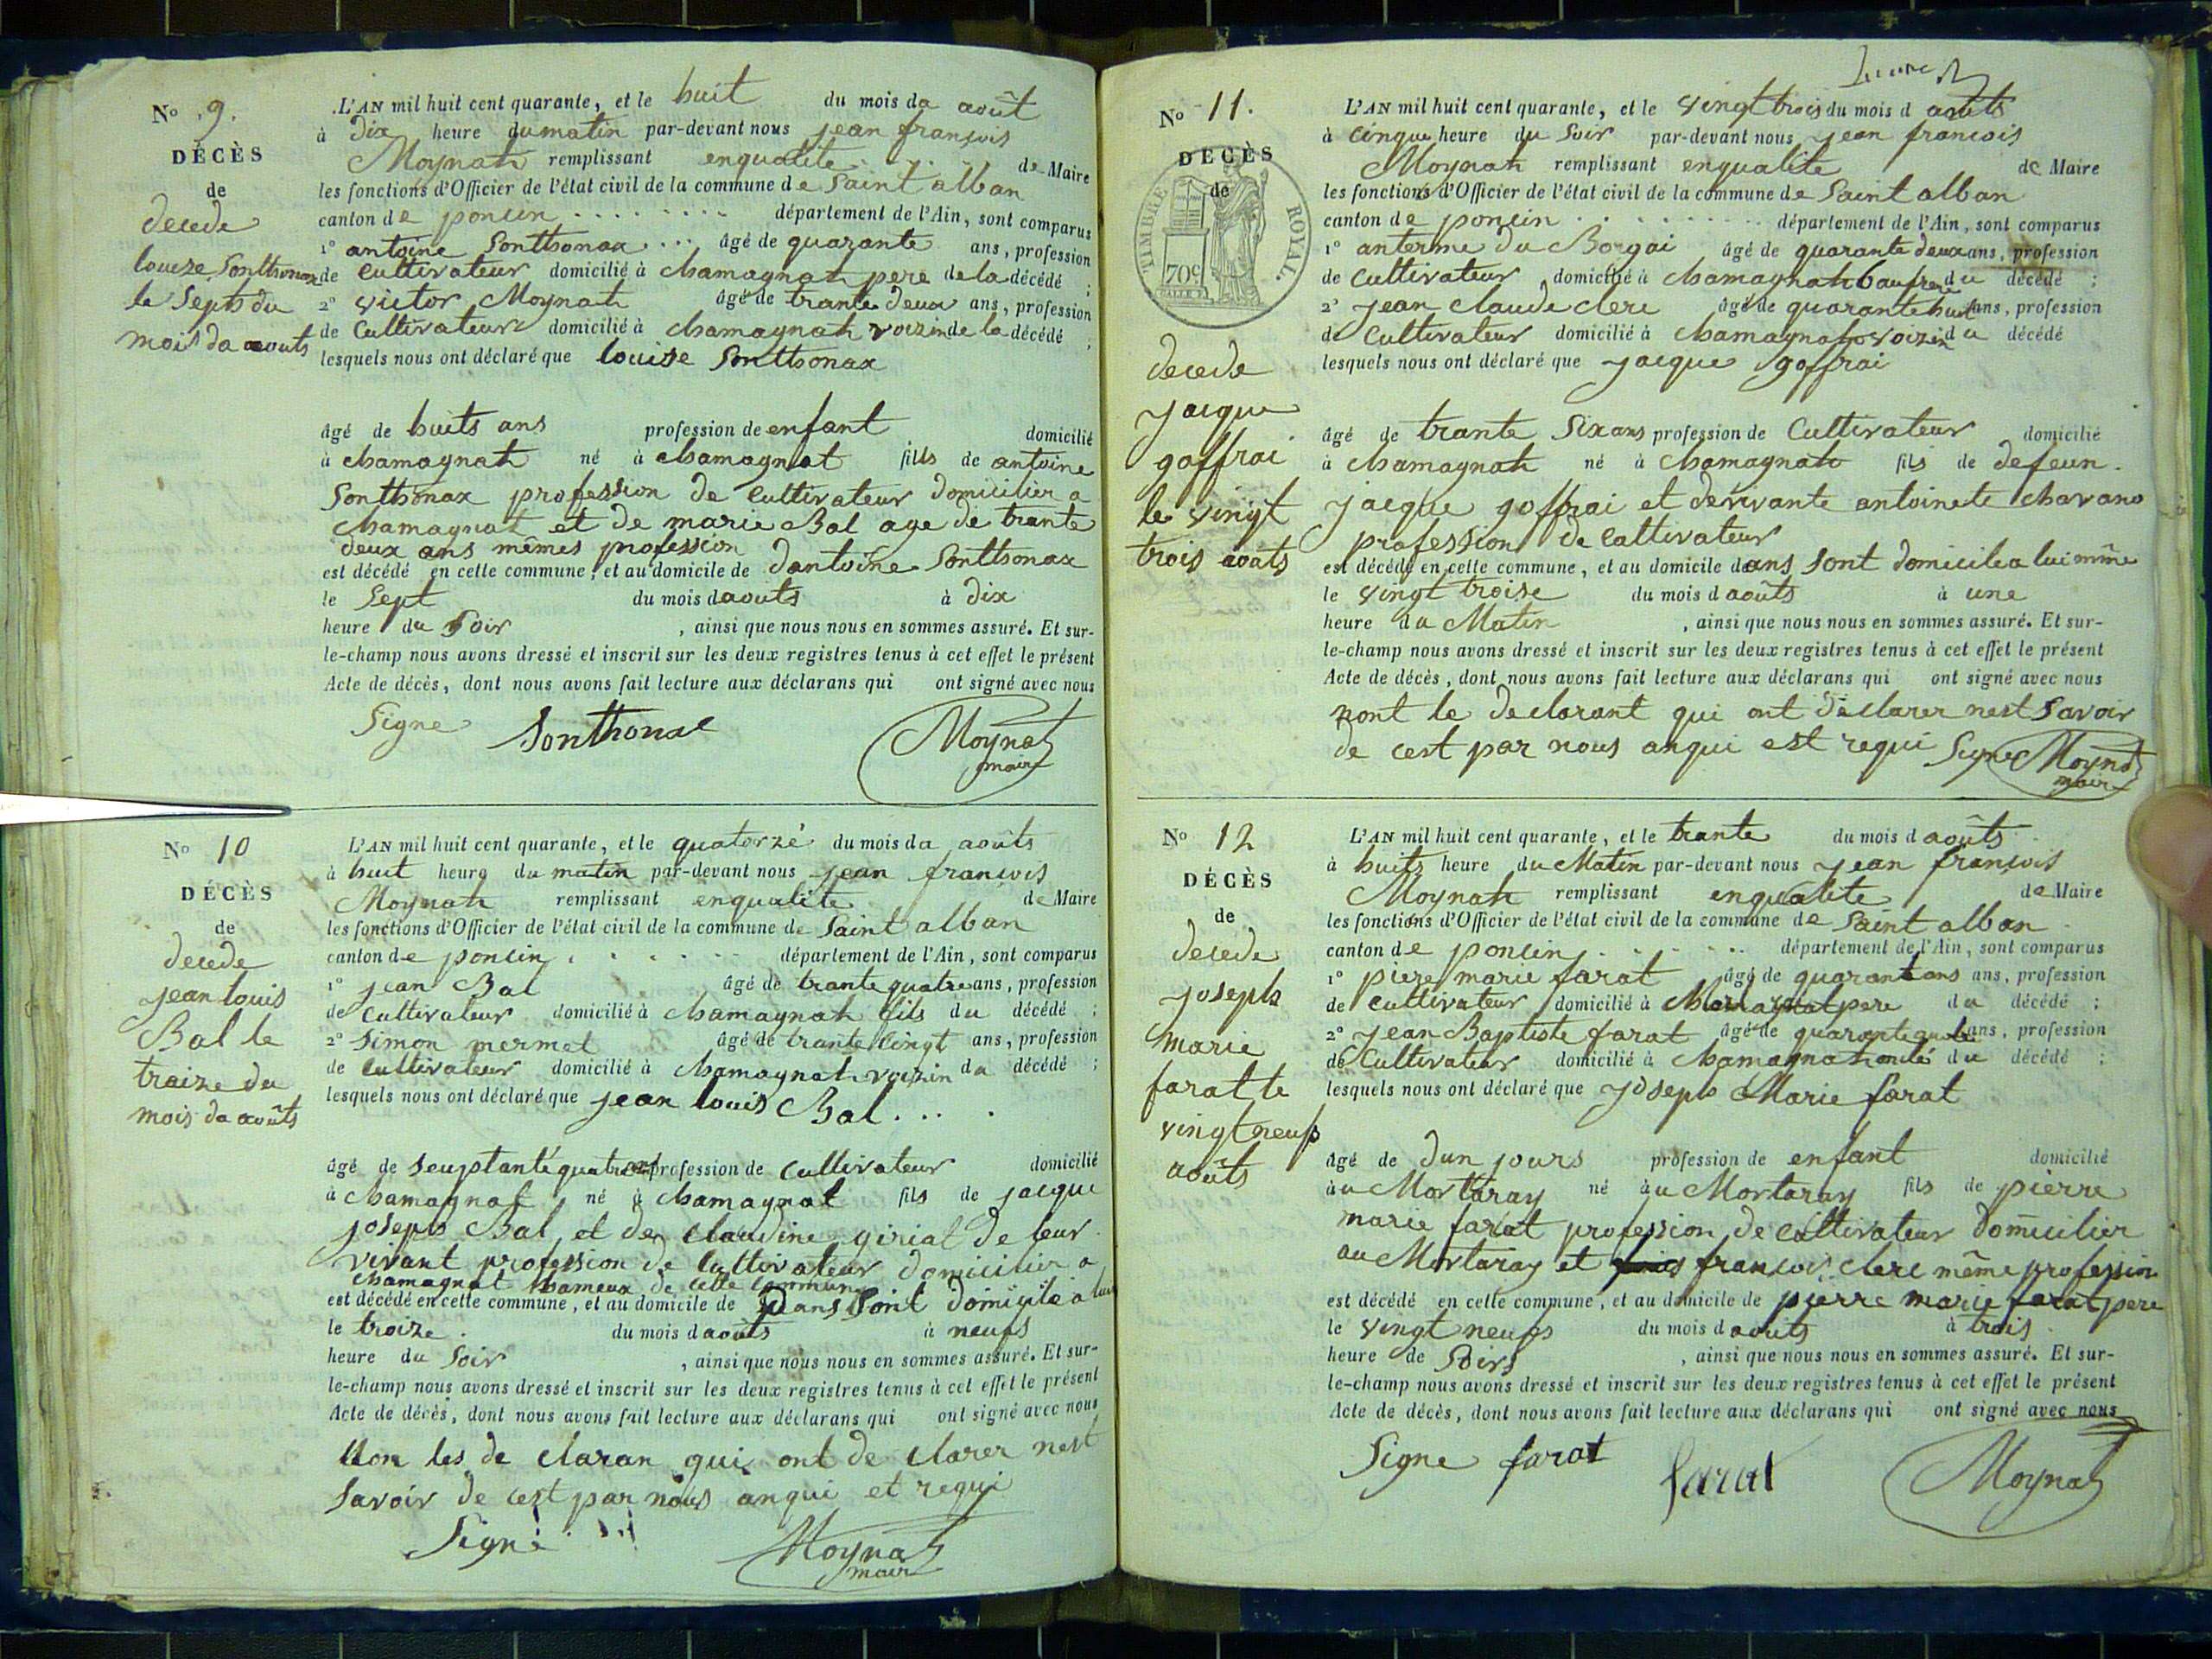 No 9.
DÉCÈS
de
decede
louize Sontthonax
le Septs du
mois da aouts
L'AN mil huit cent quarante, et le huit du mois da août
à Dix heure du matin par-devant nous jean françois
Moynat remplissant enqualite de Maire
les fonctions d'Officier de l'état civil de la commune de Saint alban
canton de poncin département de l'Ain, sont comparus
1° antoine Sontthonax âgé de quarante ans, profession
de Cultivateur domicilié à chamagnat pere de la décédé ;
2° victor Moynat âgé de trante deux ans, profession
de Cultivateur domicilié à chamagnat voizin de la décédé ;
lesquels nous ont déclaré que louise Sontthonax
âgé de huits ans profession de enfant domicilié
à chamagnat né à chamagnat fills de antoine
Sontthonax profession de Cultivateur domicilier a
chamagnat et de marie Bal age de trante
deux ans mêmes profession
est décédé en cette commune, et au domicile de dantoine Sontthonax
le Sept du mois d aouts à dix
heure du Soir , ainsi que nous nous en sommes assuré. Et sur-
le-champ nous avons dressé et inscrit sur les deux registres tenus à cet effet le présent
Acte de décès, dont nous avons fait lecture aux déclarans qui ont signé avec nous
Signe Sonthonax Moynat
mair
No 10
DÉCÈS
de
decede
jean louis
Bal le
traize du
mois da aoûts
L'AN mil huit cent quarante, et le quatorze du mois da aoûts
à huit heure du matin par-devant nous jean françois
Moynat remplissant enqualite de Maire
les fonctions d'Officier de l'état civil de la commune de Saint alban
canton de poncin département de l'Ain, sont comparus
1° jean Bal âgé de trante quatre ans, profession
de cultivateur domicilié à chamagnat fils du décédé ;
2° Simon mermet âgé de trante cingt ans, profession
de Cultivateur domicilié à chamagnat voizin da décédé ;
lesquels nous ont déclaré que jean louis Bal
âgé de Seuptante quatre profession de cultivateur domicilié
à chamagnat né à chamagnat fils de jacque
joseph Bal et de claudine girial de leur
vivant profession de Cultivateur domicilier a
chamagnat hameux de cette commune
est décédé en cette commune, et au domicile de Dans Sont domicile a lui
le troize du mois d aoûts à neufs
heure du Soir , ainsi que nous nous en sommes assuré. Et sur-
le-champ nous avons dressé et inscrit sur les deux registres tenus à cet effet le présent
Acte de décès, dont nous avons fait lecture aux déclarans qui ont signé avec nous
Non les de claran qui ont de clarer nest
Savoir de cest par nous anqui et requi
Signé Moynat
mair
No 11.
DECÈS
de
TIMBRE ROYAL.
70c
decede
jacque
goffrai
le vingt
trois aouts
L'AN mil huit cent quarante, et le vingt trois du mois d aoûts
à cinque heure du Soir par-devant nous jean francois
Moynat remplissant enqualite de Maire
les fonctions d'Officier de l'état civil de la commune de Saint alban
canton de poncin département de l'Ain, sont comparus
1° anterme du Borgai âgé de quarante deux ans, profession
de Cultivateur domicilié à chamagnat baufrere du décédé ;
2° jean claude clere âgé de quarante huit ans, profession
de Cultivateur domicilié à chamagnat voizin du décédé
lesquels nous ont déclaré que jacque goffrai
âgé de trante Six ans profession de Cultivateur domicilié
à chamagnat né à chamagnat fils de defeun
jacque goffrai et de vivante antoinete chavano
profession de Cultivateur
est décédé en cette commune, et au domicile dans Sont domicile a lui même
le vingt troise du mois d aoûts à une
heure du Matin , ainsi que nous nous en sommes assuré. Et sur-
le-champ nous avons dressé et inscrit sur les deux registres tenus à cet effet le présent
Acte de décès, dont nous avons fait lecture aux déclarans qui ont signé avec nous
nont le declarant qui ont déclarer nest Savoir
de cest par nous anqui est requi Signe Moynat
mair
No 12
DÉCÈS
de
decede
joseph
marie
farat le
vingt neuf
aoûts
L'AN mil huit cent quarante, et le trante du mois d aoûts
à huits heure du Matin par-devant nous jean françois
Moynat remplissant enqualite de Maire
les fonctions d'Officier de l'état civil de la commune de Saint alban
canton de poncin département de l'Ain, sont comparus
1° piere marie farat âgé de quarante ans ans, profession
de cultivateur domicilié à pere du décédé ;
2° jean Baptiste farat âgé de quarante ans, profession
de Cultivateur domicilié à chamagnat oncle du décédé ;
lesquels nous ont déclaré que joseph Marie farat
âgé de dun jours profession de enfant domicilié
à u Mortaray né à u Mortaray fils de pierre
marie farat profession de cultivateur domicilier
au Mortaray et francois clere même profession
est décédé en cette commune, et au domicile de pierre marie farat pere
le vingt neufs du mois d aoûts à trois
heure de Soirs , ainsi que nous nous en sommes assuré. Et sur-
le-champ nous avons dressé et inscrit sur les deux registres tenus à cet effet le présent
Acte de décès, dont nous avons fait lecture aux déclarans qui ont signé avec nous
Signe farat farat Moynat